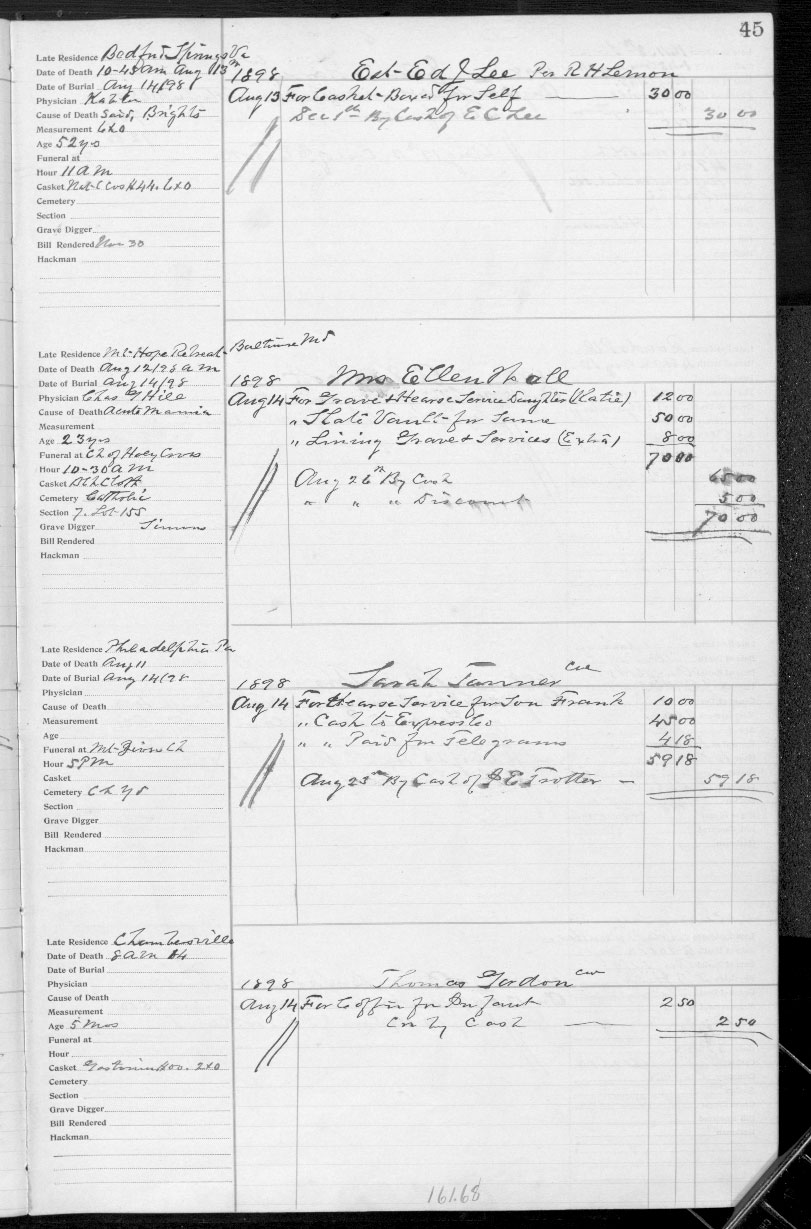 45
Late Residence Bedford Springs Va
Date of Death 10-45 am Aug 13th
Date of Burial Aug 14/98
Physician
Cause of Death Brights
Measurement 6x0
Age 52 yrs
Funeral at
Hour 11 A M
Casket 6x0
Cemetery
Section
Grave Digger
Bill Rendered Nov 30
Hackman
1898 Est- Ed J Lee Per R H Lemon
Aug 13 For Casket- Boxed for Self 30 00
Dec 1st By Cash of E C Lee 30 00
Late Residence Mt- Hope Retreat- Baltimore Md
Date of Death Aug 12/98 a m
Date of Burial Aug 14/98
Physician Chas G Hill
Cause of Death Acute Mania
Measurement
Age 23 yrs
Funeral at Ch of Holy Cross
Hour 10-30 a m
Casket Cloth
Cemetery Catholic
Section 7. Lot 155
Grave Digger Simms
Bill Rendered
Hackman
1898 Mrs Ellen Hall
Aug 14 For Grave & Hearse Service Daughter (Katie) 12 00
" Slate Vault- for Same 50 00
" Lining Grave & Services (Extra) 8 00
70 00
Aug 26th By Cash 65 00
" " " Discount 5 00
70 00
Late Residence Philadelphia Pa
Date of Death Aug 11
Date of Burial Aug 14/98
Physician
Cause of Death
Measurement
Age
Funeral at Mt- Zion Ch
Hour 5 P M
Casket
Cemetery Ch Yd
Section
Grave Digger
Bill Rendered
Hackman
1898 Sarah Tanner Col
Aug 14 For Hearse Service for Son Frank 10 00
" Cash to Express Co 45 00
" " Paid for Telegrams 4 18
59 18
Aug 23rd By Cash of E Trotter — 59 18
Late Residence Chambersville
Date of Death 8 A M 14
Date of Burial
Physician
Cause of Death
Measurement
Age 5 Mos
Funeral at
Hour
Casket 2x0
Cemetery
Section
Grave Digger
Bill Rendered
Hackman
1898 Thomas Gordon Col
Aug 14 For Coffin for Infant 2 50
Cr By Cash 2 50
161.68